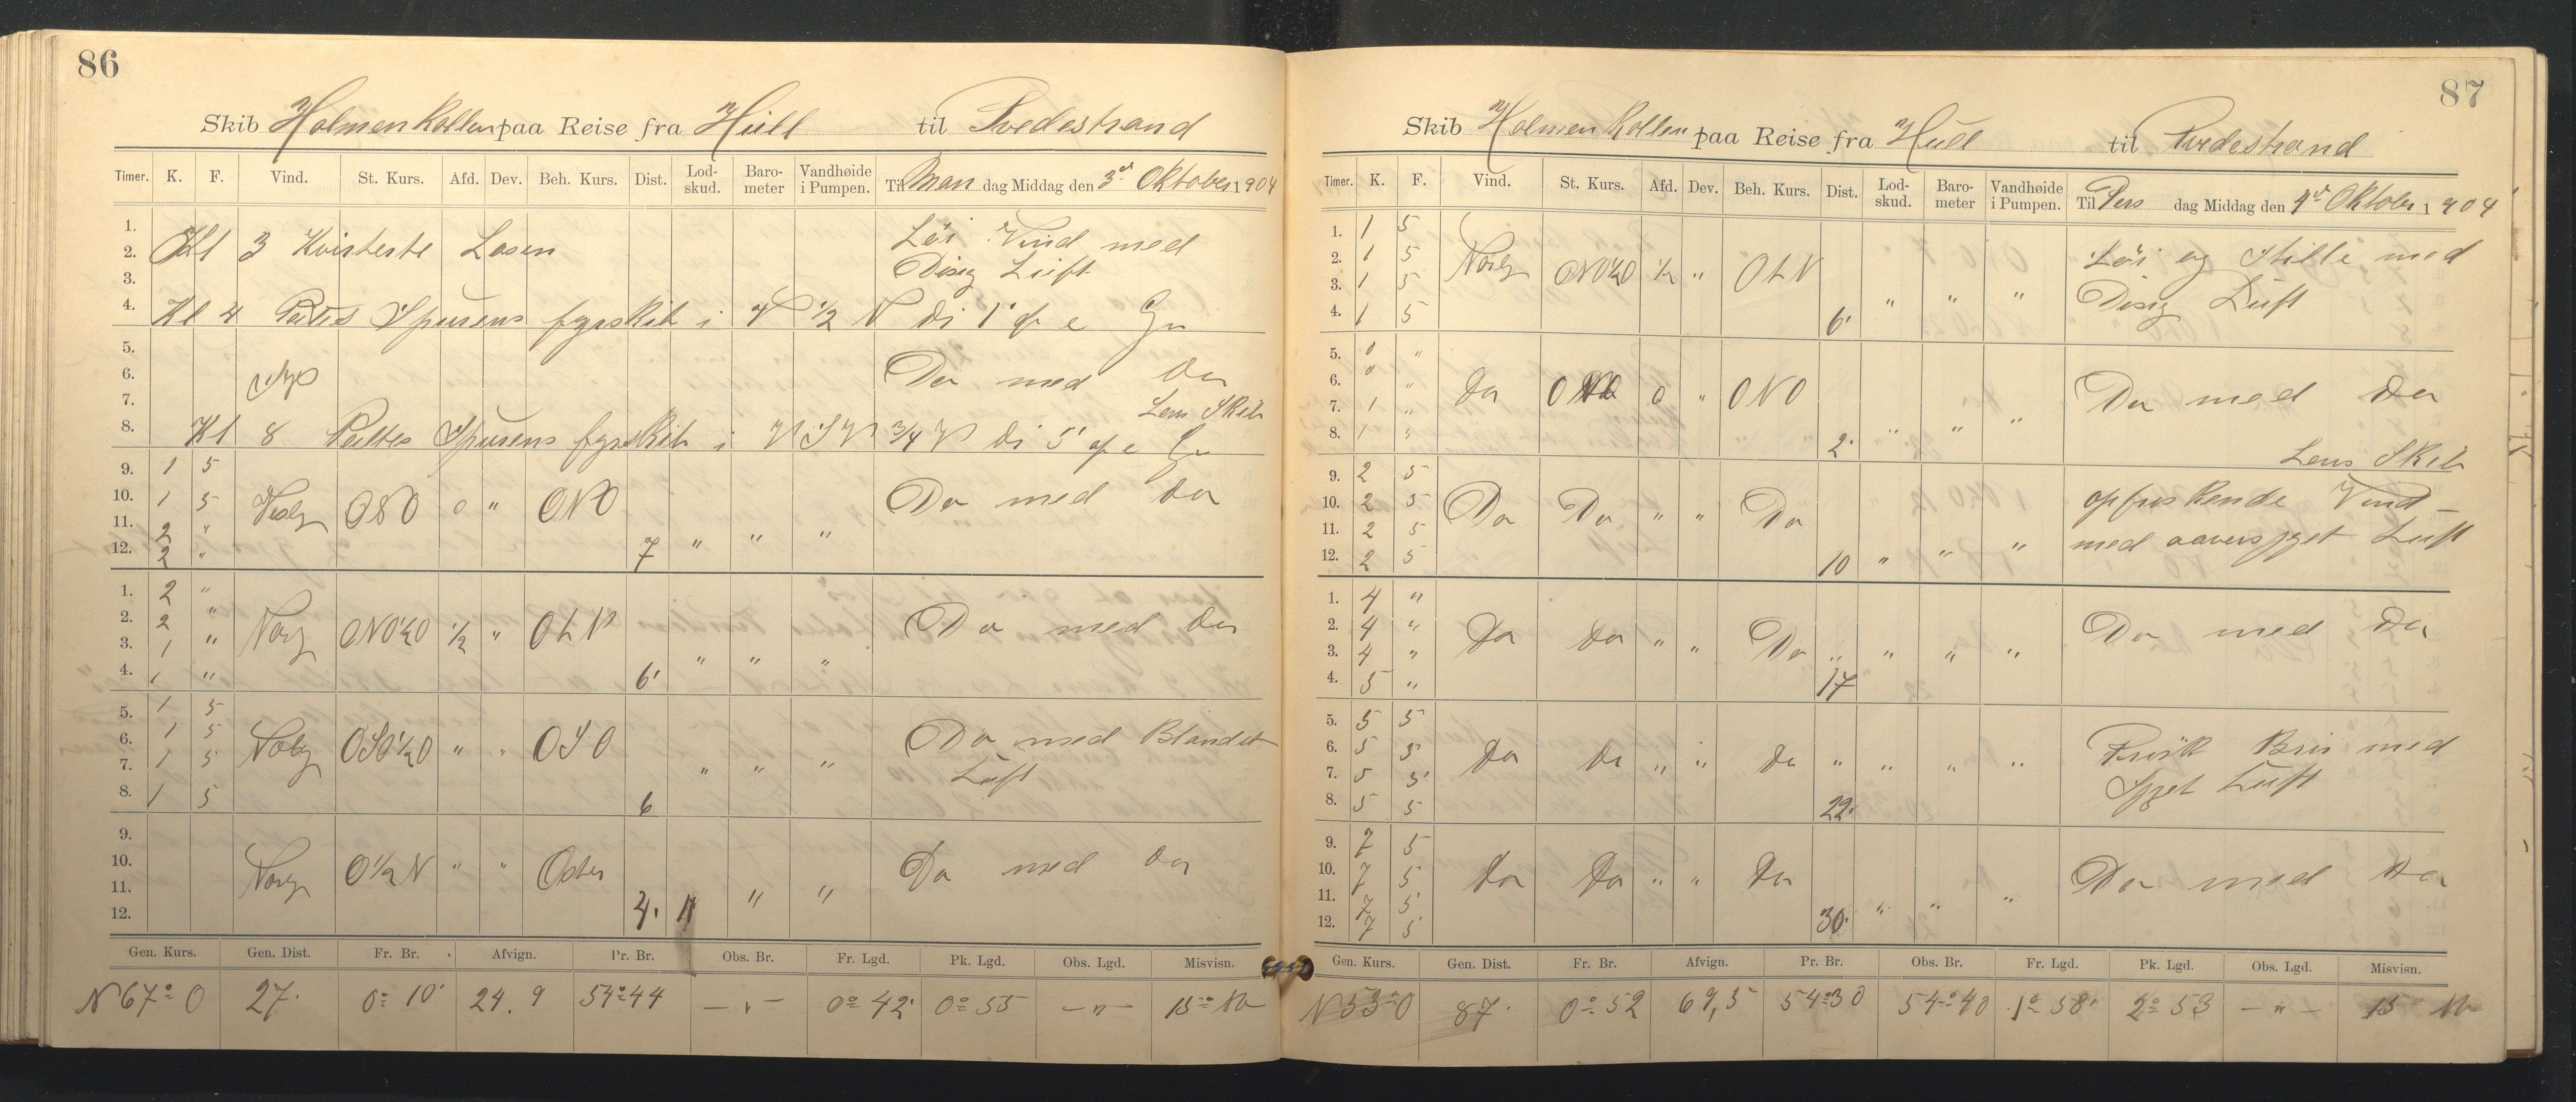 86
Skib Holmenkollen paa Reise fra Hull til Tvedestrand
Timer. K. F. Vind. St. Kurs. Afd. Dev. Beh. Kurs. Dist. Lod-skud. Baro-meter Vandhøide i Pumpen. Til Man dag Middag den 3d Oktober 1904
1.
2. Kl 3 Kvisterte Losen Løi Vind med
3. Disig Luft
4. Kl 4 Spurens fyrskib i 1/2
5.
6. Do med Do
7. Lens Skib
8. Kl 8 Spurens fyrskib i 3/4
9. 1 5
10. 1 5 Vestlg ONO 0 " ONO Do med Do
11. 2 "
12. 2 " 7 " " "
1. 2 "
2. 2 " ONO½O ½ " OLN Do med Do
3. 1 "
4. 1 " 6' " " "
5. 1 5
6. 1 5 OSO½O " " OSO Do med Blandet
7. 1 5 Luft
8. 1 5 6 " " "
9.
10. O½N " " Oster Do med Do
11.
12. 4' " " "
Gen. Kurs. Gen. Dist. Fr. Br. Afvign. Pr. Br. Obs. Br. Fr. Lgd. Pk. Lgd. Obs. Lgd. Misvisn.
N 67° O 27' 0° 10' 24.9 54°44 — " — 0° 42' 0° 55 — " — 15°
87
Skib Holmenkollen paa Reise fra Hull til Tvedestrand
Timer. K. F. Vind. St. Kurs. Afd. Dev. Beh. Kurs. Dist. Lod-skud. Baro-meter Vandhøide i Pumpen. Til Ters dag Middag den 4d Oktober 1904
1. 1 5
2. 1 5 ONO½O ½ " OLN Løi og Stille med
3. 1 5 Disig Luft
4. 1 5 6' " " "
5. 0 "
6. 0 " Do 0 " ONO Do med Do
7. 1 "
8. 1 " 2' " " "
Lens Skib
9. 2 5
10. 2 5 Do Do " " Do opfriskende Vind
11. 2 5 med Luft
12. 2 5 10 " " "
1. 4 "
2. 4 " Do Do " " Do Do med Do
3. 4 "
4. 5 " 17 " " "
5. 5 5
6. 5 5 Do Do " " Do Frisk Bris med
7. 5 5 Luft
8. 5 5 22' " " "
9. 7 5
10. 7 5 Do Do " " Do Do med Do
11. 7 5
12. 7 5 30' " " "
Gen. Kurs. Gen. Dist. Fr. Br. Afvign. Pr. Br. Obs. Br. Fr. Lgd. Pk. Lgd. Obs. Lgd. Misvisn.
N 53° O 87' 0° 52 69,5 54°30 54°40 1° 58' 2° 53 — " — 15